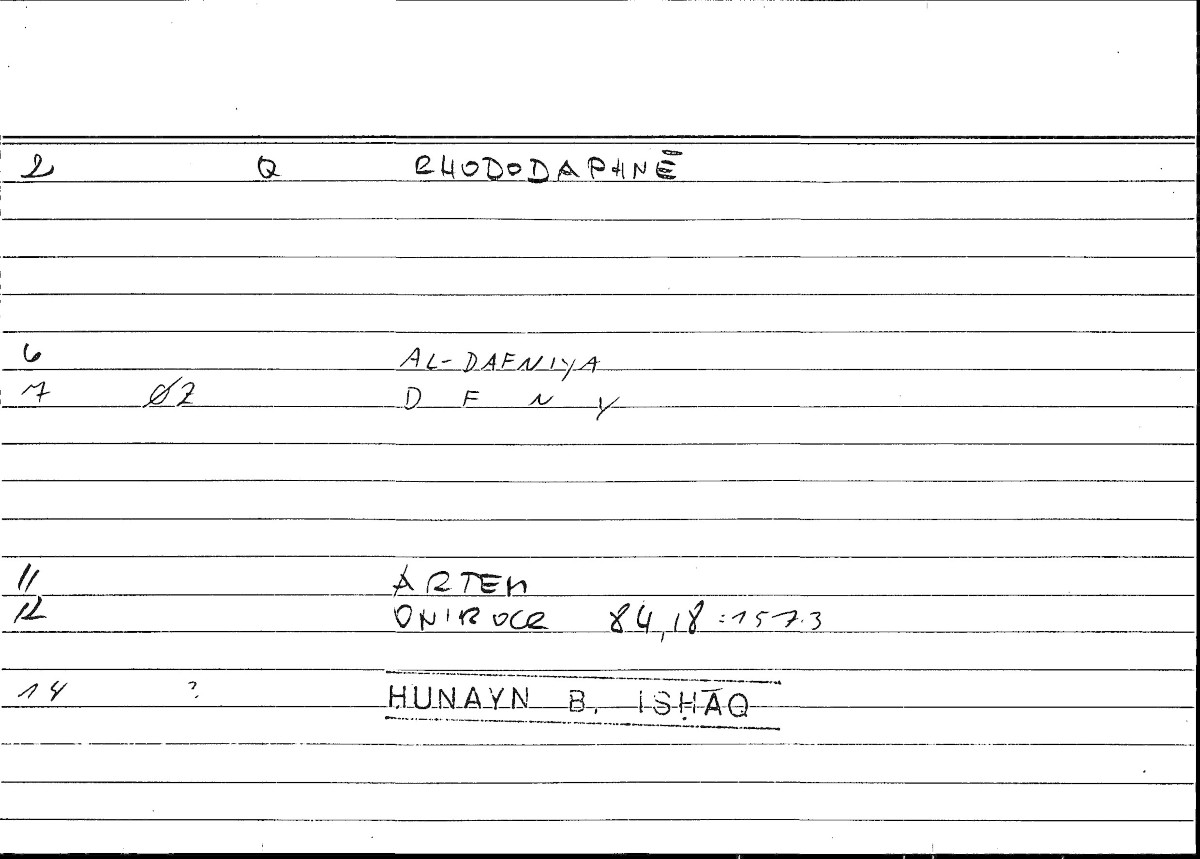 2 Q RHODODAPHNĒ
6 AL-DAFNIYA
7 Ø2 D F N Y
11 ARTEM
12 ONIROCR 84,18:157.3
14 ? HUNAYN B. ISḤĀQ